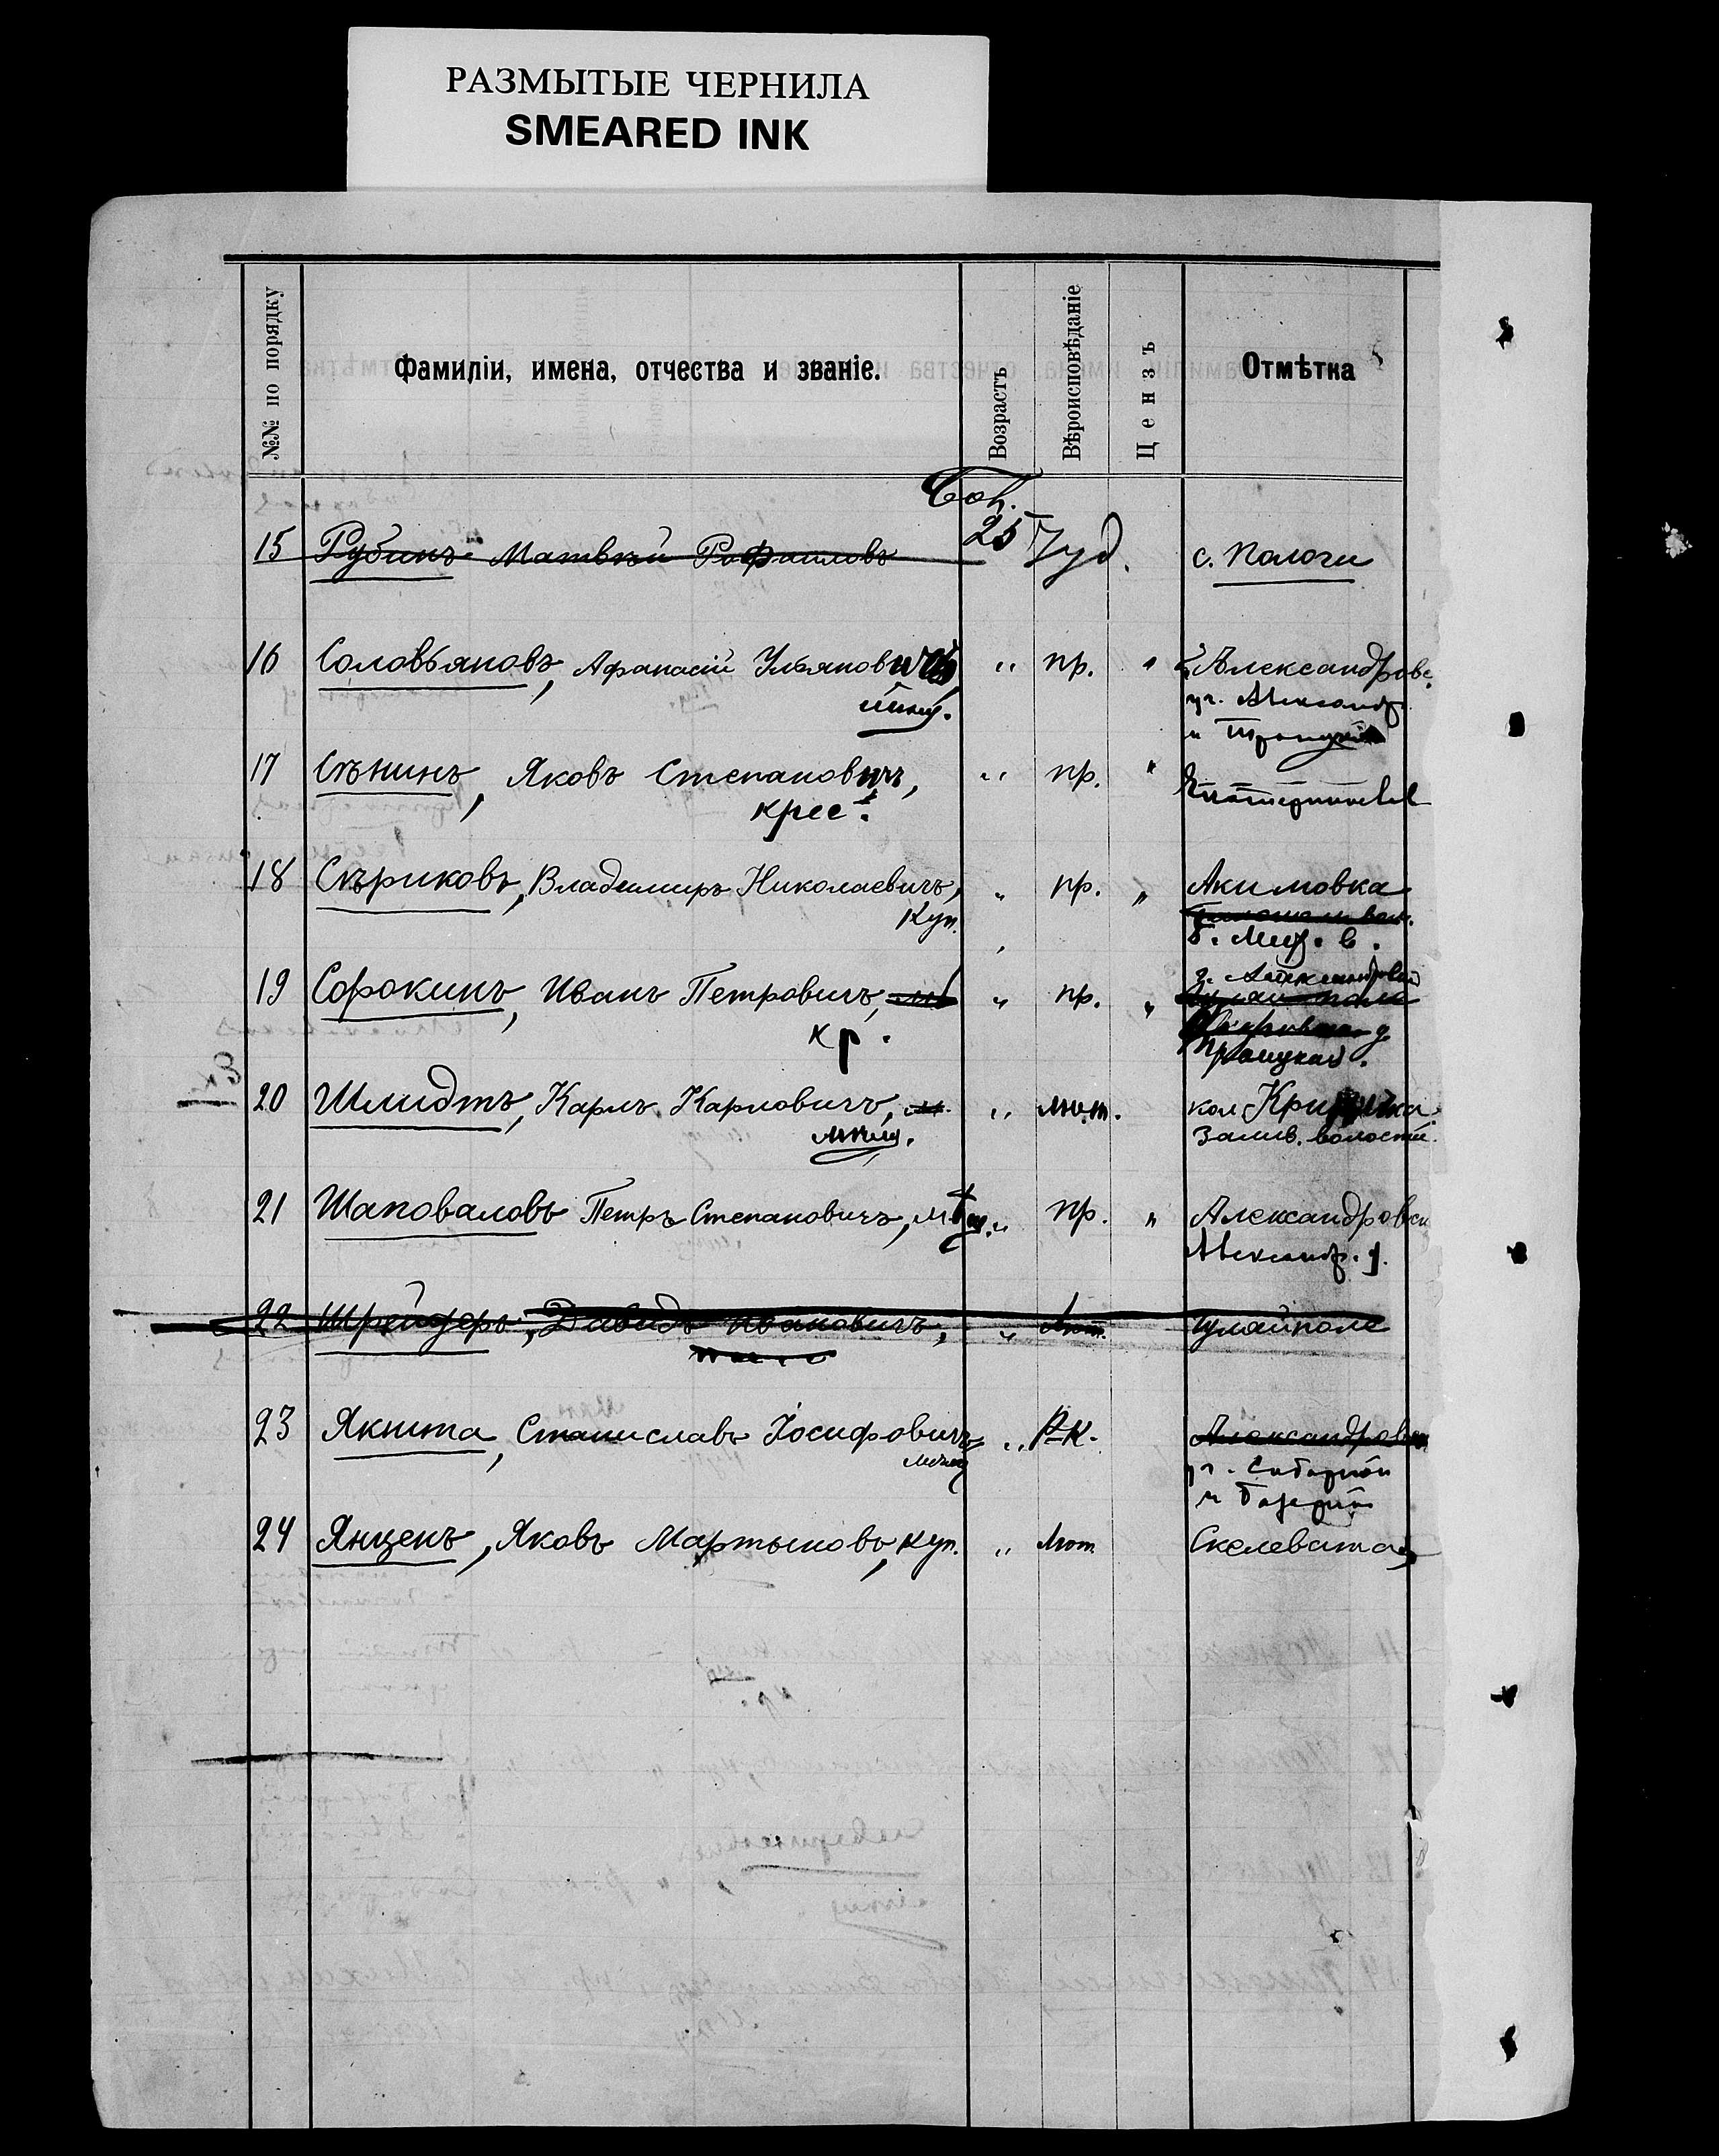 РАЗМЫТЫЕ ЧЕРНИЛА
SMEARED INK
№№ по порядку
Фамиліи, имена, отчества и званіе.
Возрастъ
Вѣроисповѣданіе
Цензъ
Отмѣтка
15 Рубинъ Матвѣй Рафаиловъ 25 Іуд. с. Пологи
16 Соловьяновъ, Афанасій Ульяновичъ " пр. " Александровс.
уг. Александр.
и Троицкой
17 Сѣнинъ, Яковъ Степановичъ, " пр. "
крес.
18 Сѣриковъ, Владимиръ Николаевичъ, " пр. " Акимовка
Куп.
19 Сорокинъ, Иванъ Петровичъ, " пр. "
кр.
Троицкая.
20 Шмидтъ, Карлъ Карловичъ, " лют. кол.
мѣщ. Залив. волости.
21 Шаповаловъ Петръ Степановичъ, мѣщ. " пр. " Александровск
Александр. у.
22 Шрейдеръ, Давидъ Ивановичъ, " Лют. Гуляйполе
23 Якшта, Станиславъ Іосифовичъ " Р-К. Александровск
мѣщ уг. Соборной
и Базарной
24 Янценъ, Яковъ Мартыновъ, куп. " Лют. Скелеватая